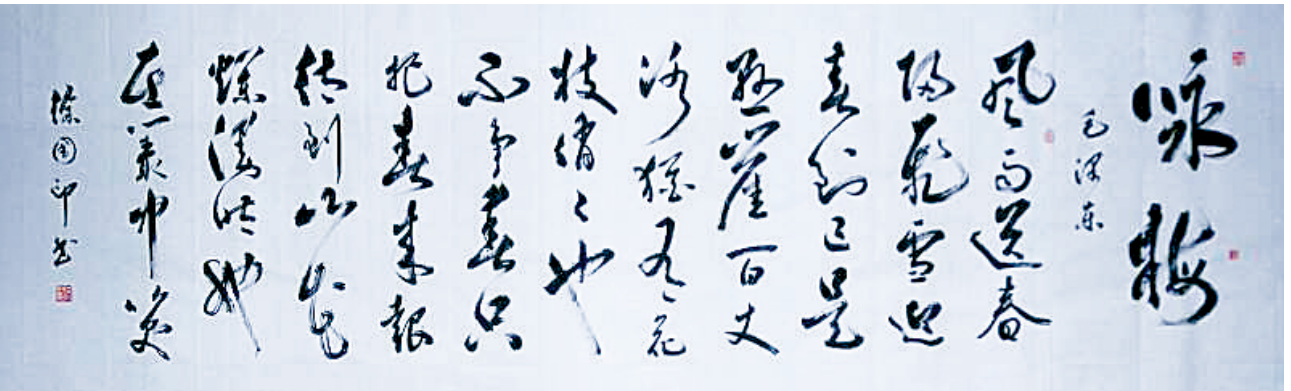 咏梅
毛泽东
风雨送春
归飞雪迎
春到已是
悬崖百丈
冰犹有花
枝俏〻也
不争春只
把春来报
待到山花
烂漫时她
在丛中笑
国印书